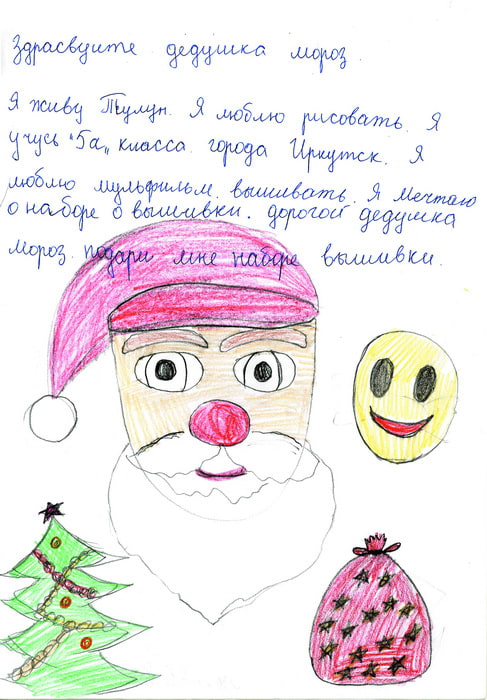 Здрасвуите дедушка мороз.
Я живу Тулун. Я люблю рисовать. Я
учусь "5а„ класса города Иркутск. Я
люблю мульфильм. вышивать. Я мечтаю
о наборе о вышивки. дорогой дедушка
мороз. подари мне наборе вышивки.